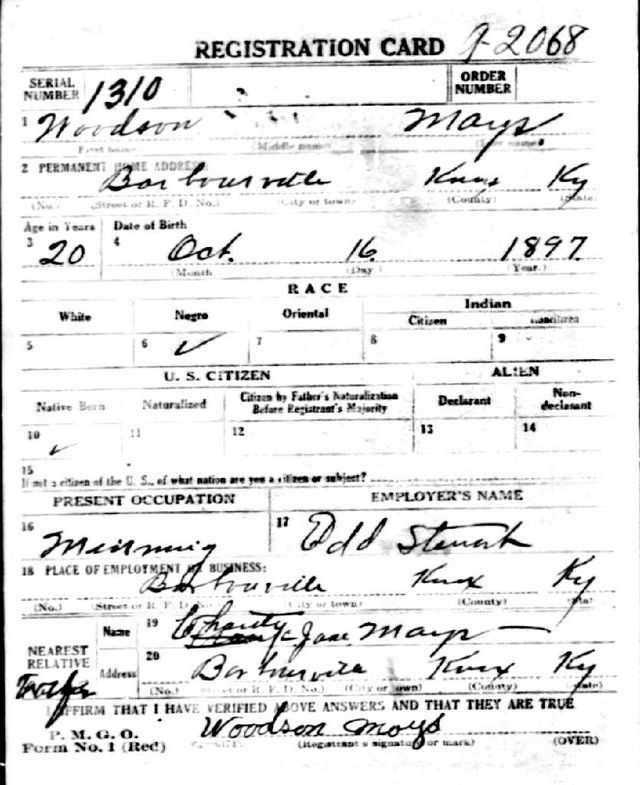 REGISTRATION CARD 9-2068
SERIAL NUMBER 1310 ORDER NUMBER
1 Woodson Mays
First name Middle name Last name
2 PERMANENT HOME ADDRESS:
Barbourville Knox Ky
(No.) (Street or R. F. D. No.) (City or town) (County) (State)
Age in Years Date of Birth
3 20 4 Oct. 16 1897
(Month) (Day) (Year.)
RACE
White Negro Oriental Indian
Citizen Noncitizen
5 6 ✓ 7 8 9
U. S. CITIZEN ALIEN
Native Born Naturalized Citizen by Father's Naturalization Before Registrant's Majority Declarant Non-declarant
10 ✓ 11 12 13 14
15
If not a citizen of the U. S., of what nation are you a citizen or subject?
PRESENT OCCUPATION EMPLOYER'S NAME
16 17
Mining Edd Stewart
18 PLACE OF EMPLOYMENT OR BUSINESS:
Barbourville Knox Ky
(No.) (Street or R. F. D. No.) (City or town) (County) (State)
NEAREST RELATIVE Name 19 Charity Jane Mays
Address 20 Barbourville Knox Ky
(No.) (Street or R. F. D. No.) (City or town) (County) (State)
I AFFIRM THAT I HAVE VERIFIED ABOVE ANSWERS AND THAT THEY ARE TRUE
P. M. G. O.
Form No. 1 (Red) Woodson Mays
(Registrant's signature or mark) (OVER)